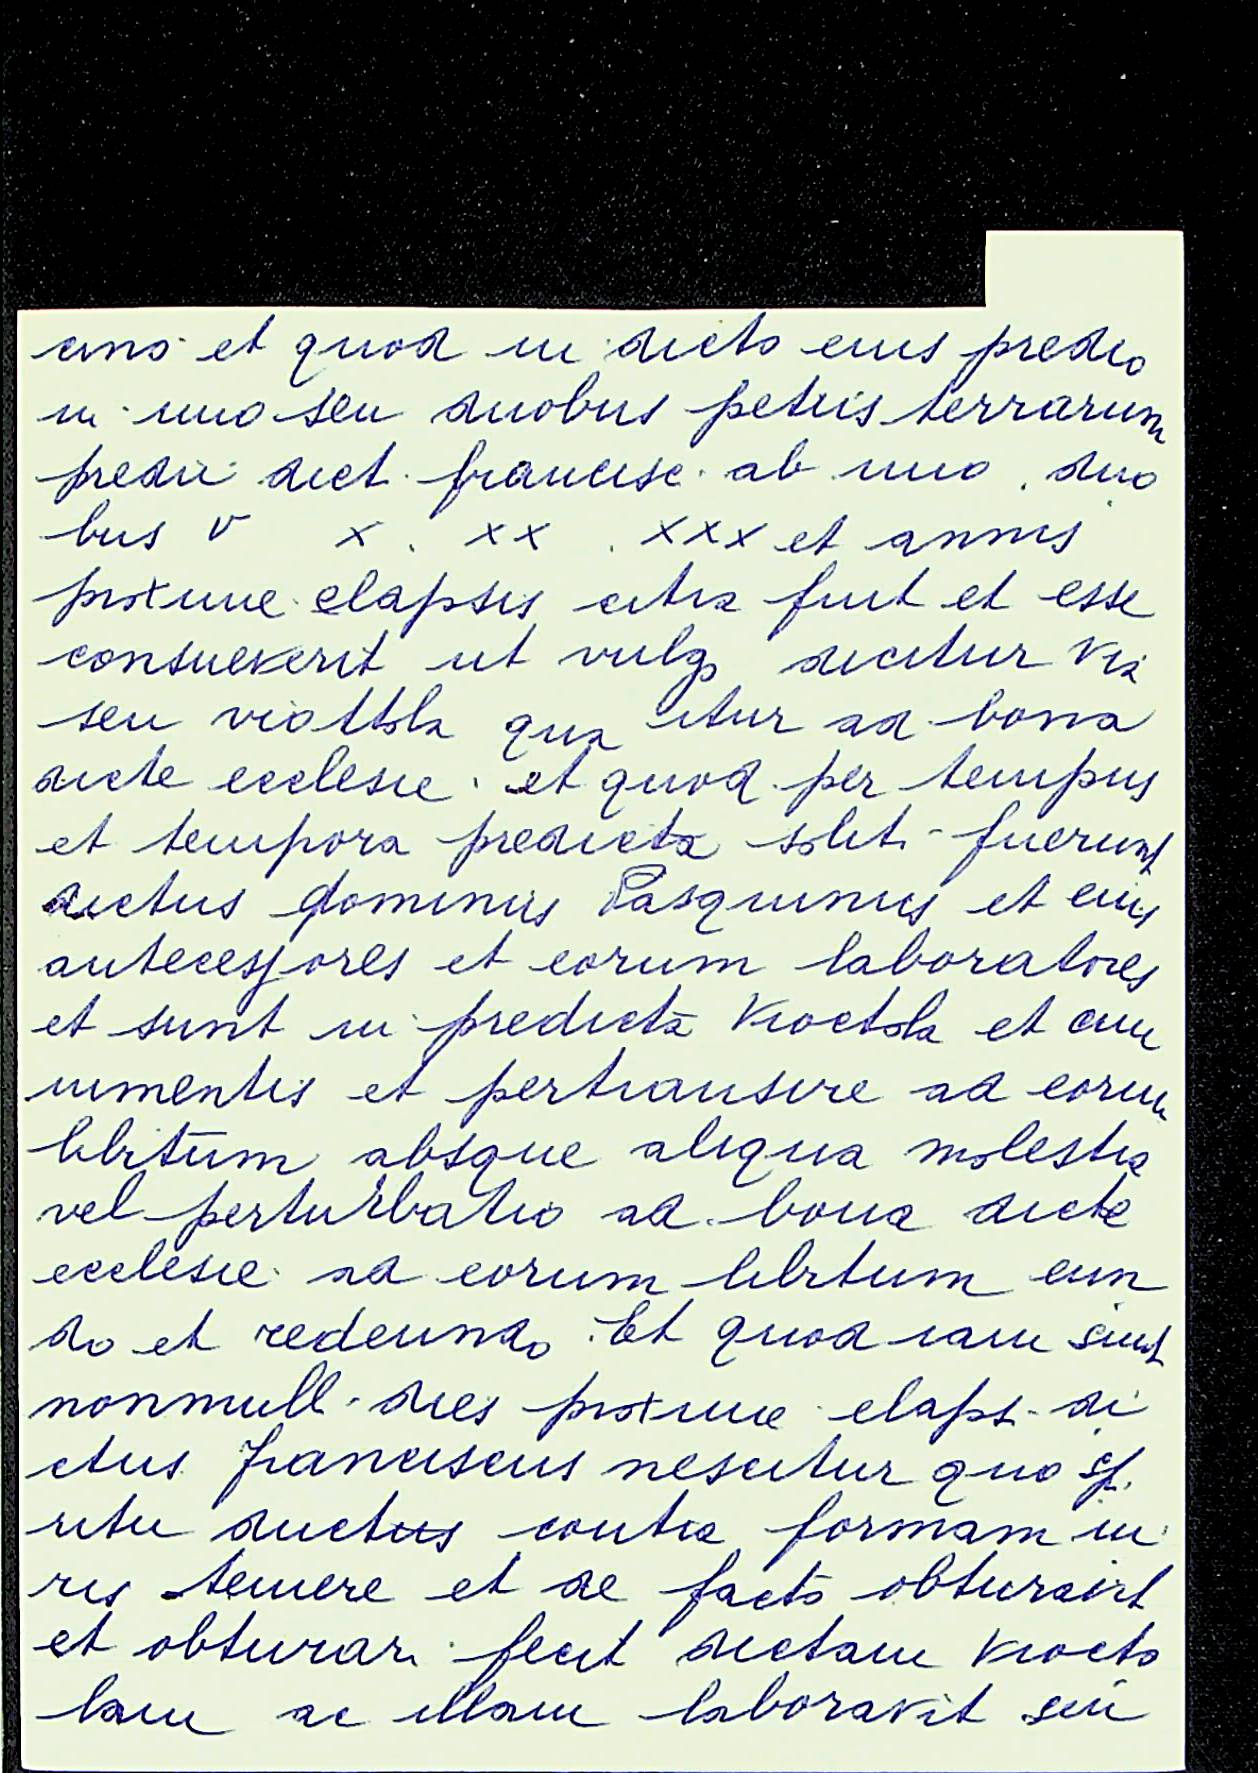 cino et quod in dicto eius predio
in uno seu duobus petiis terrarum
predii dict. francisc. ab uno . duo
bus v x . xx . xxx et annis
proxime elapsis citra fuit et esse
consueverit ut vulgo dicitur via
seu viottola qua itur ad bona
dicte ecclesie . et quod per tempus
et tempora predicta soliti fuerunt
dictus dominus Pasquinus et eius
antecessores et eorum laboratores
et sunt in predicta vioctola et cum
iumentis et pertransire ad eorum
libitum absque aliqua molestia
vel perturbatio ad bona dicte
ecclesie ad eorum libitum eun
do et redeundo . Et quod iam sunt
nonnull. dies proxime elaps. di
ctus franciscus nescitur quo spi
ritu ductus contra formam iu
ris temere et de facto obturavit
et obturari fecit dictam viocto
lam ac illam laboravit seu